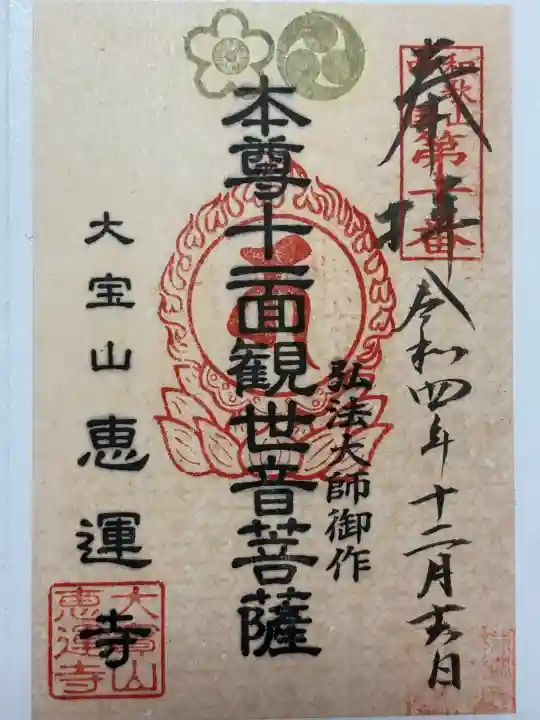 奉拝
和歌山
令和四年十二月吉日
弘法大師御作
本尊十一面観世音菩薩
大宝山恵運寺
大寳山
恵運寺